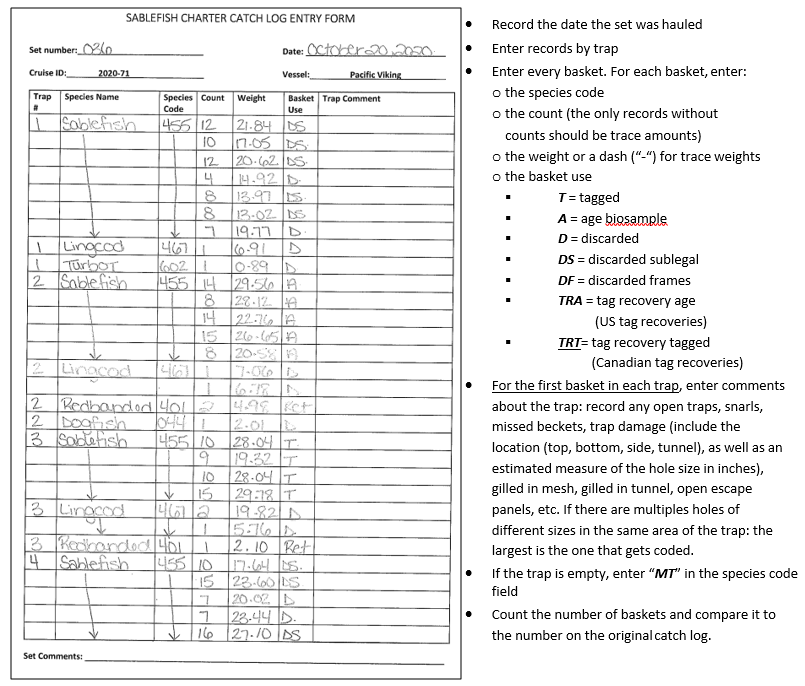 SABLEFISH CHARTER CATCH LOG ENTRY FORM
Set number: 036 Date: October 20, 2020
Cruise ID: 2020-71 Vessel: Pacific Viking
Trap # Species Name Species Code Count Weight Basket Use Trap Comment
1 Sablefish 455 12 21.84 DS
10 17.05 DS
12 20.62 DS
4 14.92 D
8 13.97 DS
8 13.02 DS
7 19.77 D
1 Lingcod 467 1 6.91 D
1 Turbot 602 1 0.89 D
2 Sablefish 455 14 29.56 A
8 28.12 A
14 22.76 A
15 26.65 A
8 20.58 A
2 Lingcod 467 1 7.06 D
1 6.78 D
2 Redbanded 401 2 4.98 Ret
2 Dogfish 044 1 2.01 D
3 Sablefish 455 10 28.04 T
9 19.32 T
10 28.04 T
15 29.78 T
3 Lingcod 467 2 19.82 D
1 5.76 D
3 Redbanded 401 1 2.10 Ret
4 Sablefish 455 10 17.64 DS
15 23.60 DS
7 20.02 D
7 23.44 D
16 27.10 DS
Set Comments:
• Record the date the set was hauled
• Enter records by trap
• Enter every basket. For each basket, enter:
o the species code
o the count (the only records without
counts should be trace amounts)
o the weight or a dash (“-“) for trace weights
o the basket use
▪ T = tagged
▪ A = age biosample
▪ D = discarded
▪ DS = discarded sublegal
▪ DF = discarded frames
▪ TRA = tag recovery age
(US tag recoveries)
▪ TRT= tag recovery tagged
(Canadian tag recoveries)
• For the first basket in each trap, enter comments
about the trap: record any open traps, snarls,
missed beckets, trap damage (include the
location (top, bottom, side, tunnel), as well as an
estimated measure of the hole size in inches),
gilled in mesh, gilled in tunnel, open escape
panels, etc. If there are multiples holes of
different sizes in the same area of the trap: the
largest is the one that gets coded.
• If the trap is empty, enter “MT” in the species code
field
• Count the number of baskets and compare it to
the number on the original catch log.